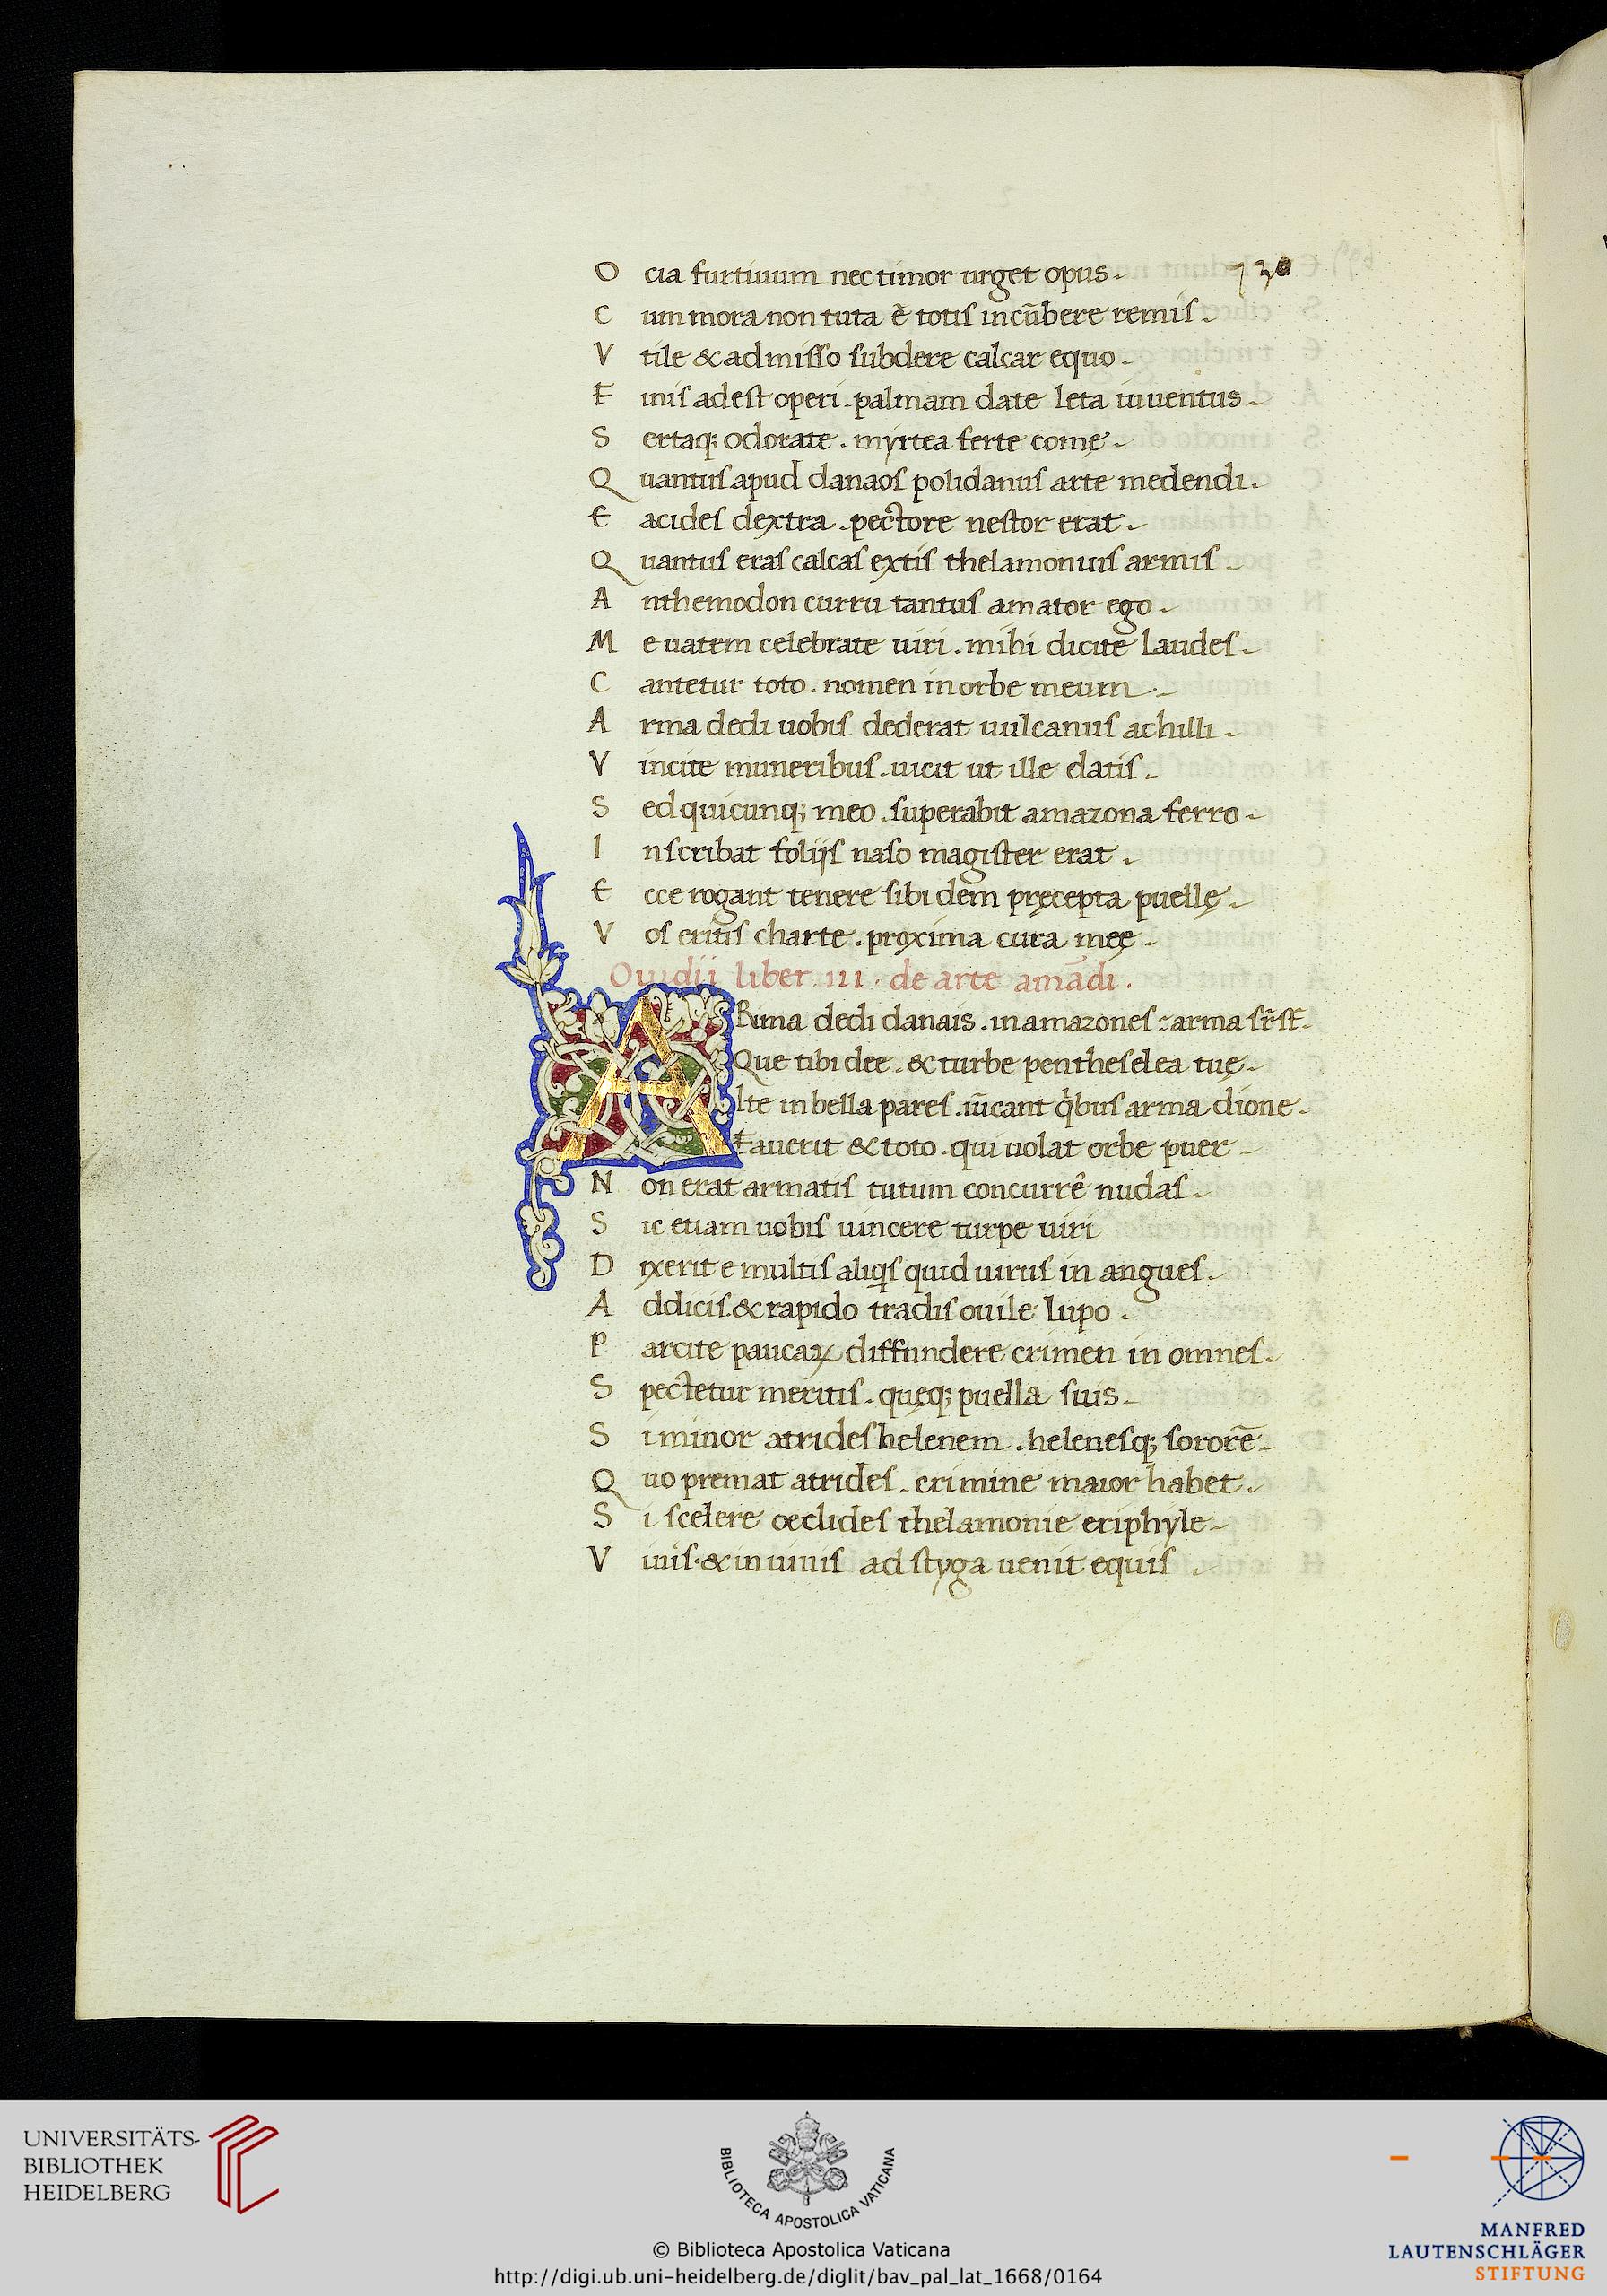 O cia furtiuum nec timor urget opus. 730
C um mora non tuta ē totis incūbere remis.
V tile & admisso subdere calcar equo.
F inis adest operi. palmam date leta iuuentus.
S ertaq; odorate. myrtea ferte comę.
Q uantus apud danaos polidarius arte medendi.
E acides dextra. pectore nestor erat.
Q uantus eras calcas extis thelamonius armis.
A uthemodon curru tantus amator ego.
M e uatem celebrate uiri. mihi dicite laudes.
C antetur toto. nomen in orbe meum.
A rma dedi uobis dederat uulcanus achilli.
V incite muneribus. uicit ut ille datis.
S ed quicunq; meo. superabit amazona ferro.
I nscribat folijs naso magister erat.
E cce rogant tenere sibi dem pręcepta puellę.
V os eritis charte. proxima cura męę.
Ouidii liber. iii. de arte amādi.
A Rima dedi danais. in amazones: arma sr̄st̄.
Que tibi dee. & turbe pentheselea tuę.
Ite in bella pares. uīcant qͥbus arma dione.
Fauerit & toto. qui uolat orbe puer.
N on erat armatis tutum concurrē nudas.
S ic etiam uobis uincere turpe uiri
D ixerit e multis aliqͥs quid uirus in angues.
A ddicis. & rapido tradis ouile lupo.
P arcite paucaꝝ diffundere crimen in omnes.
S pectetur meritis. quęq; puella suis.
S i minor atrides helenem. helenesq; sororē.
Q uo premat atrides. crimine maior habet.
S i scelere oeclides thelamonie eriphyle.
V iuis. & in uiuis ad styga uenit equis.
UNIVERSITÄTS-
BIBLIOTHEK
HEIDELBERG
BIBLIOTECA APOSTOLICA VATICANA
© Biblioteca Apostolica Vaticana
http://digi.ub.uni-heidelberg.de/diglit/bav_pal_lat_1668/0164
MANFRED
LAUTENSCHLÄGER
STIFTUNG